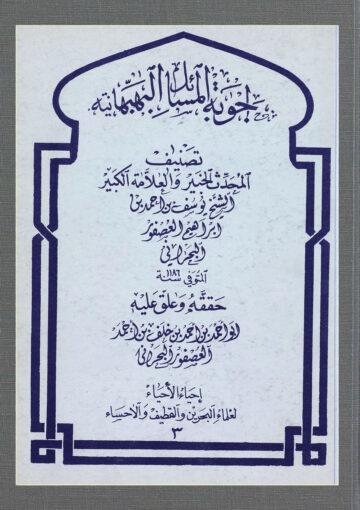 أجوبة المسائل البهبهانية
تصنيف
المحدث الخبير والعلامة الكبير
الشيخ يوسف بن أحمد بن
إبراهيم العصفور
البحراني
المتوفى سنة ١١٨٦
حققه وعلق عليه
ابو احمد بن احمد بن خلف بن احمد
العصفور البحراني
إحياء الأحياء
لعلماء البحرين والقطيف والاحساء
٣